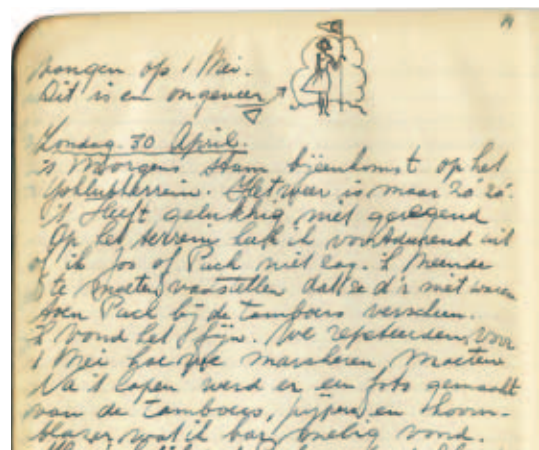 vangen op 1 Mei.
Dit is em ongeveer
Zondag. 30 April.
's Morgens stam bijeenkomst op het
terrein. Het weer is maar zo zo.
't Heeft gelukkig niet geregend
Op het terrein keek ik voortdurend uit
of ik Jos of Puck niet zag. ik meende
te moeten vaststellen dat ze d'r niet waren
toen Puck bij de tamboers verscheen.
ik vond het fijn. We repeteerden voor
1 Mei hoe we marcheren moeten
Na 't lopen werd er een foto gemaakt
van de tamboers, pijpers en hoorn-
blazer wat ik bar vond.